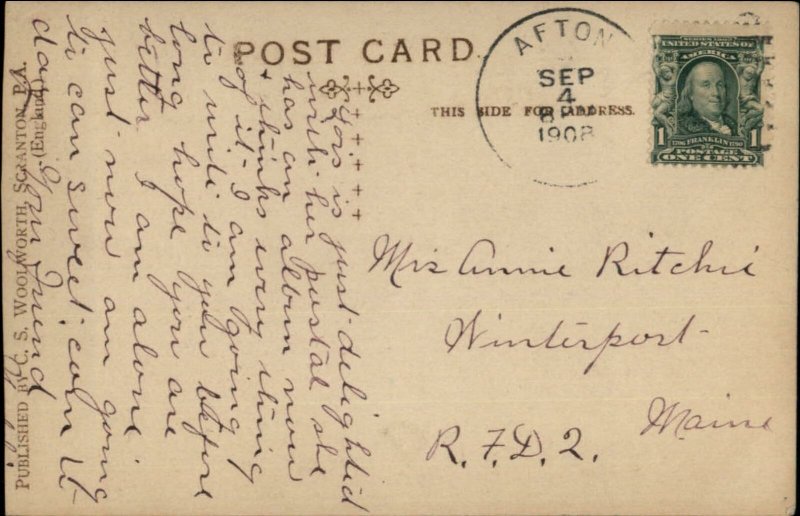 POST CARD.
THIS SIDE FOR ADDRESS.
AFTON
SEP
4
1908
SERIES 1902
UNITED STATES OF
AMERICA
1706 FRANKLIN 1790
1 1
POSTAGE
ONE CENT
Mrs Annie Ritchie
Winterport
Maine
R. F. D. 2.
is just delighted
with her postal she
has an album now
+ thinks every thing
of it. I am going
to write to you before
long hope you are
better I am alone
just now am going
to can sweet corn to
day Your Friend
PUBLISHED BY C. S. WOOLWORTH, SCRANTON, PA.
(England)